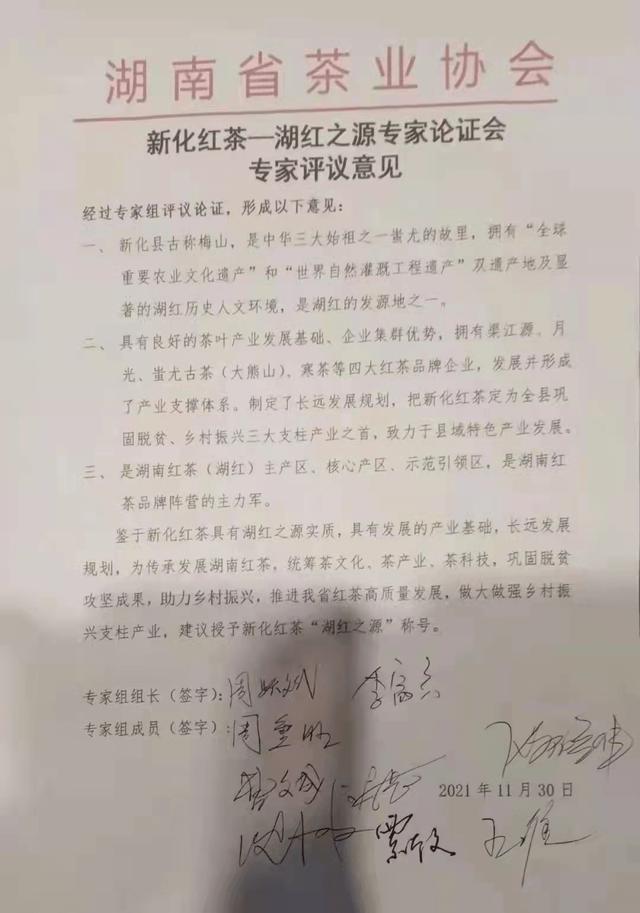 湖南省茶业协会
新化红茶—湖红之源专家论证会
专家评议意见
经过专家组评议论证，形成以下意见：
一、 新化县古称梅山，是中华三大始祖之一蚩尤的故里，拥有“全球
重要农业文化遗产”和“世界自然灌溉工程遗产”双遗产地及显
著的湖红历史人文环境，是湖红的发源地之一。
二、 具有良好的茶叶产业发展基础、企业集群优势，拥有渠江源、月
光、蚩尤古茶（大熊山）、寒茶等四大红茶品牌企业，发展并形成
了产业支撑体系。制定了长远发展规划，把新化红茶定为全县巩
固脱贫、乡村振兴三大支柱产业之首，致力于县域特色产业发展。
三、 是湖南红茶（湖红）主产区、核心产区、示范引领区，是湖南红
茶品牌阵营的主力军。
鉴于新化红茶具有湖红之源实质，具有发展的产业基础，长远发展
规划，为传承发展湖南红茶，统筹茶文化、茶产业、茶科技，巩固脱贫
攻坚成果，助力乡村振兴，推进我省红茶高质量发展，做大做强乡村振
兴支柱产业，建议授予新化红茶“湖红之源”称号。
专家组组长（签字）：
专家组成员（签字）：周重旺
2021 年 11 月 30 日